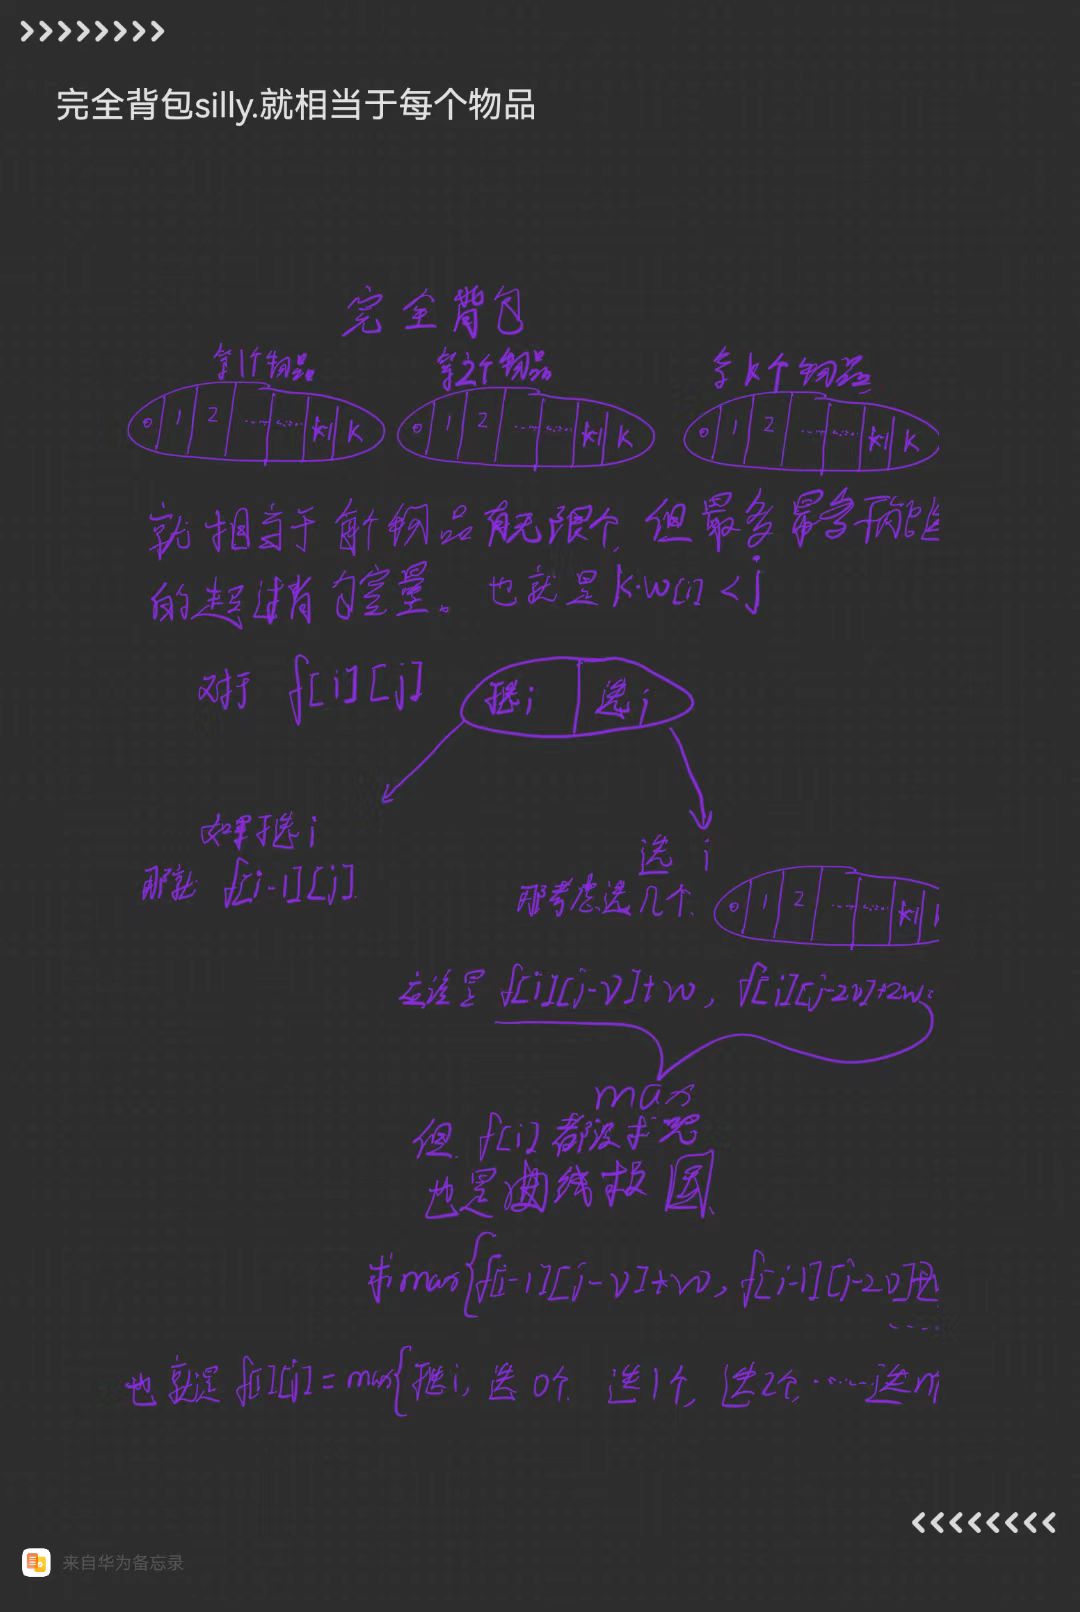 完全背包silly.就相当于每个物品
完全背包
拿1个物品 拿2个物品 拿k个物品
0 1 2 …… …… k-1 k 0 1 2 …… …… k-1 k 0 1 2 …… …… k-1 k
就相当于每个物品有无限个,但最多最多不能
的超过背包容量。也就是k·w[i]<j
对于 f[i][j] 不选i 选i
如果不选i
选 i
那就 f[i-1][j].
那考虑选几个. 0 1 2 …… …… k-1
应该是 f[i][j-v]+w, f[i][j-2v]+2w.
max
但. f[i]都没求完
也是曲线救国
求max{f[i-1][j-v]+w, f[i-1][j-2v]
也就是 f[i][j]=max{不选i, 选0个. 选1个, 选2个, ……选
来自华为备忘录